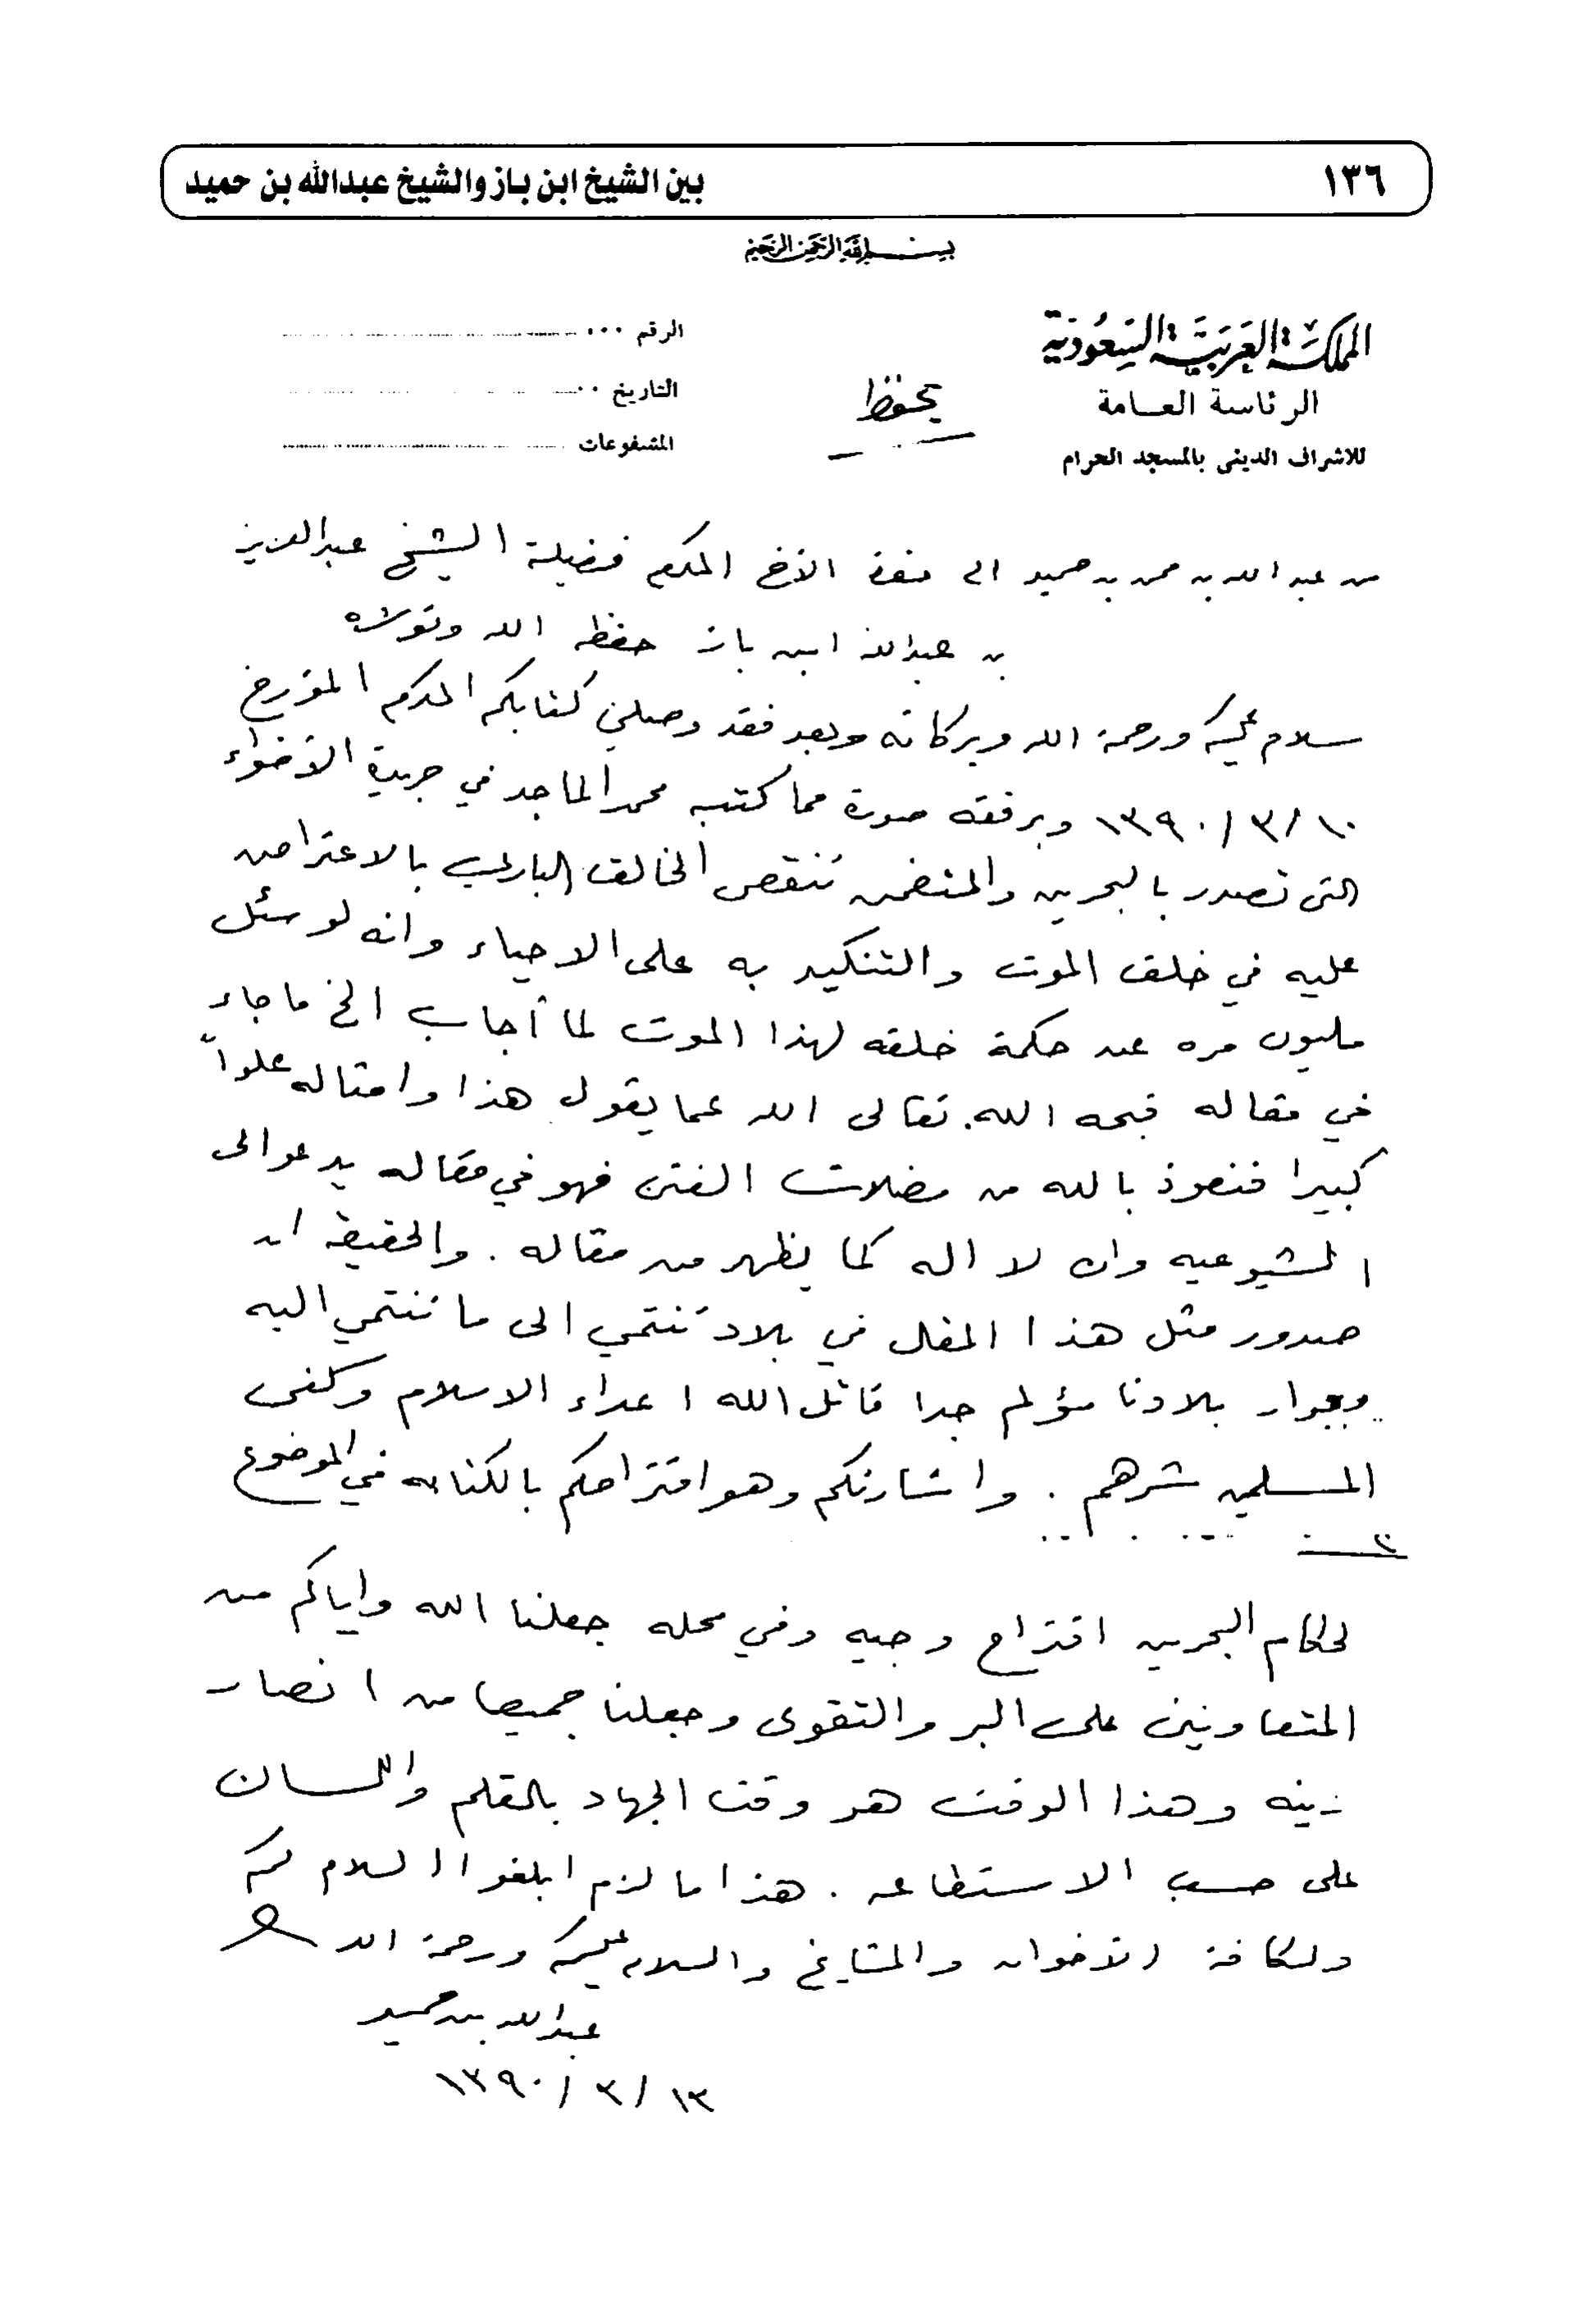 ١٣٦
بين الشيخ ابن باز والشيخ عبدالله بن حميد
بسم الله الرحمن الرحيم
المملكة العربية السعودية
الرئاسة العامة
للاشراف الديني بالمسجد الحرام
يحفظ
الرقم
التاريخ
المشفوعات
من عبد الله بن محمد بن حميد الى حضرة الأخ المكرم فضيلة الشيخ عبدالعزيز
بن عبدالله ابن باز حفظه الله وتولاه
سلام عليكم ورحمة الله وبركاته وبعد فقد وصلني كتابكم المكرم المؤرخ
١٠/٣/١٣٩٠ وبرفقه صورة مما كتبه محمد الماجد في جريدة الأضواء
التي تصدر بالبحرين والمتضمن تنقص الخالق الباري بالاعتراض
عليه في خلق الموت والتنكيد به على الاحياء وانه لو سئل
مليون مره عن حكمة خلقه لهذا الموت لما أجاب الخ ما جاء
في مقاله قبحه الله. تعالى الله عما يقول هذا وامثاله علواً
كبيرا فنعوذ بالله من مضلات الفتن فهو في مقاله يدعو الى
الشيوعيه وان لا اله كما يظهر من مقاله . والحقيقة ان
صدور مثل هذا المقال في بلاد تنتمي الى ما تنتمي اليه
وبجوار بلادنا مؤلم جدا قاتل الله اعداء الاسلام وكفى
المسلمين شرهم . واشارتكم وهو اقتراحكم بالكتابه في الموضوع
لحكام البحرين اقتراح وجيه وفي محله جعلنا الله واياكم من
المتعاونين على البر والتقوى وجعلنا جميعا من انصار
دينه وهذا الوقت هو وقت الجهاد بالقلم واللسان
على حسب الاستطاعه . هذا ما لزم ابلغوا السلام لكم
ولكافة الأخوان والمشايخ والسلام عليكم ورحمة الله
عبدالله بن حميد
١٣/٣/١٣٩٠